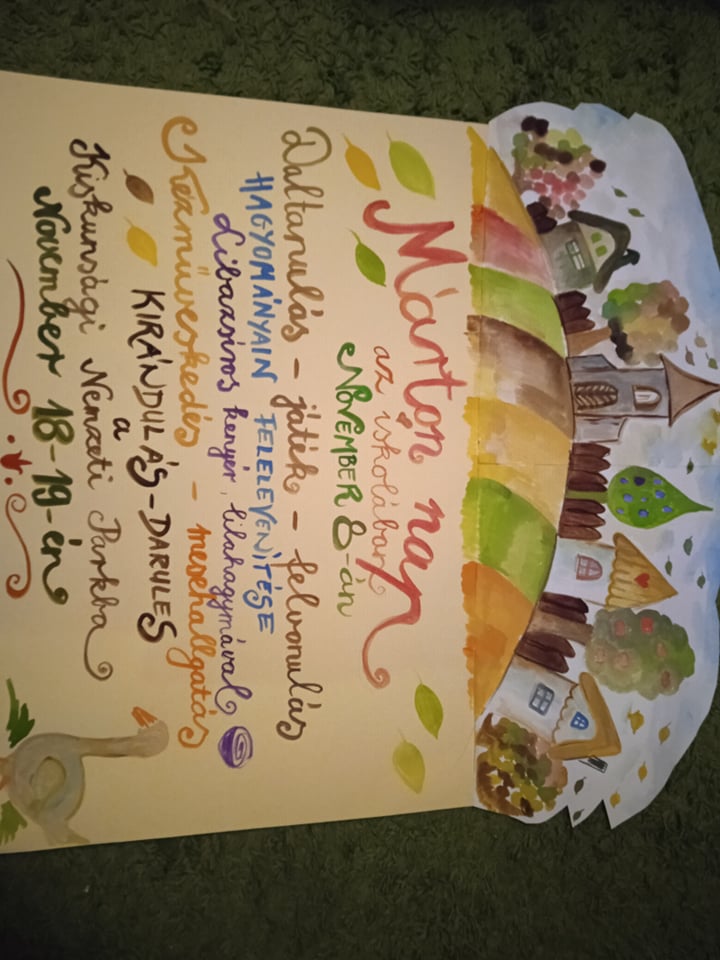 Márton nap
az iskolában
NOVEMBER 8-án
Daltanulás - játék - felvonulás
HAGYOMÁNYAIN FELELEVENÍTÉSE
Libazsíros kenyér, lilahagymával
Kézműveskedés - mesehallgatás
KIRÁNDULÁS-DARULES
a
Kiskunsági Nemzeti Parkba
November 18-19-én